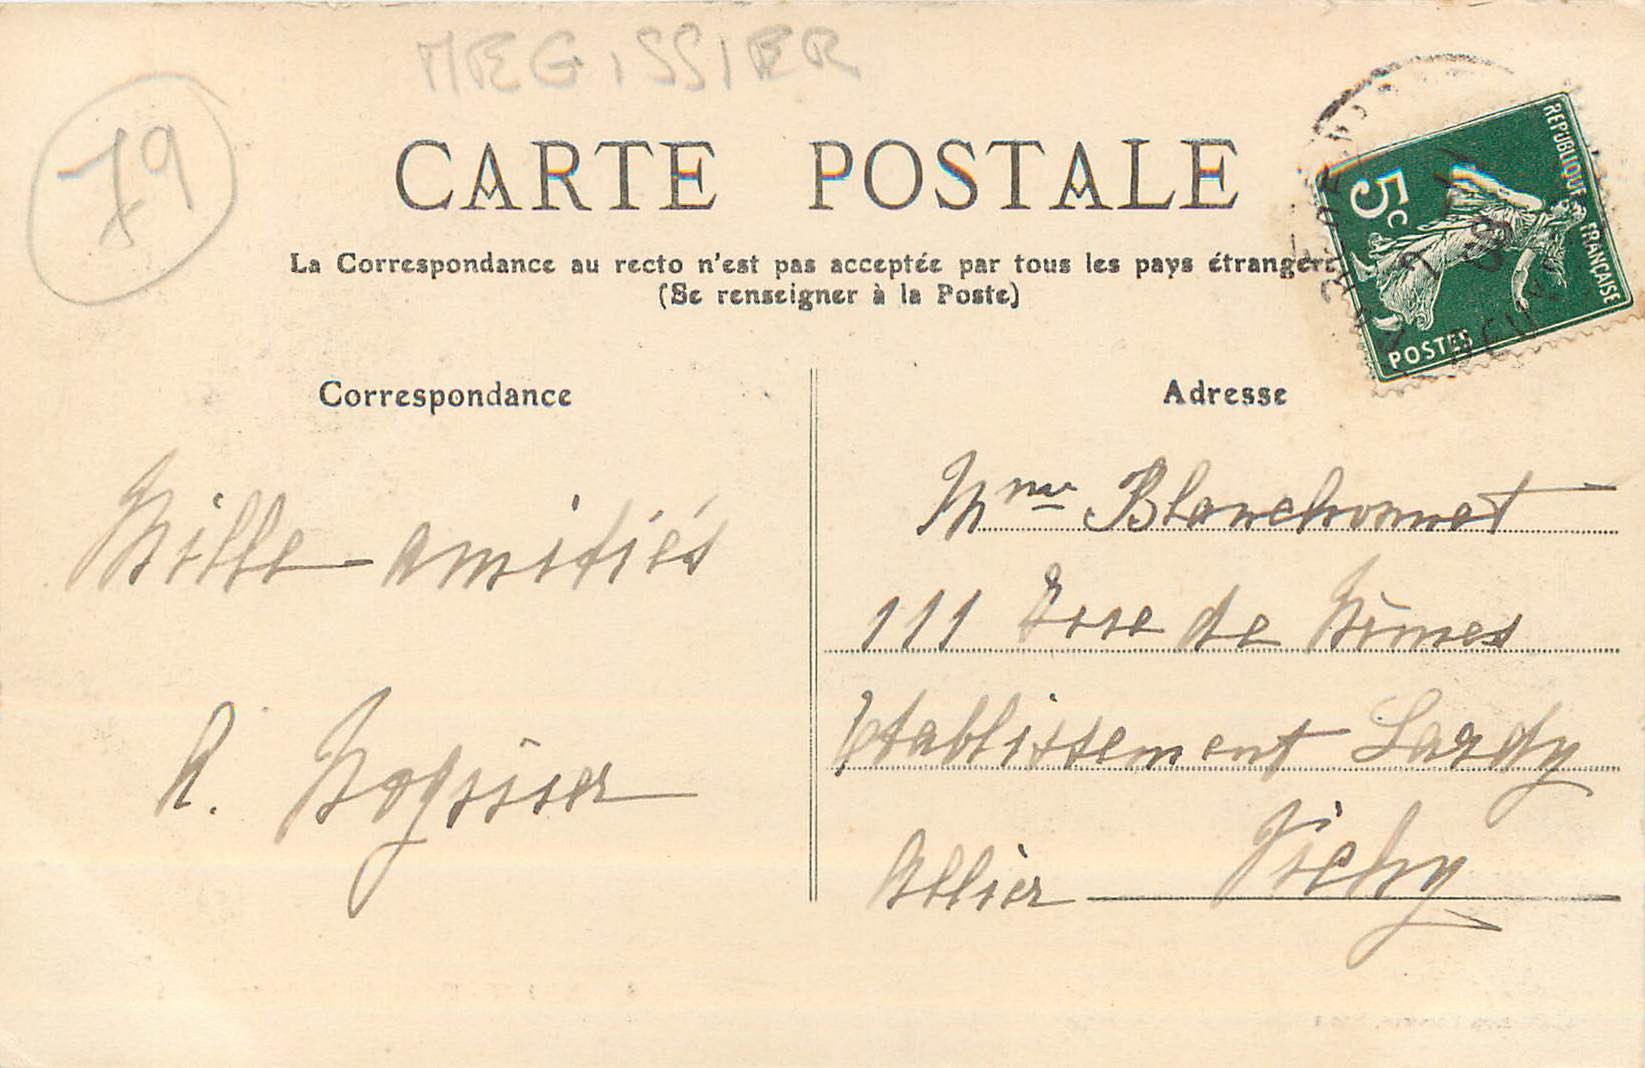 MEGISSIER
79
CARTE POSTALE
La Correspondance au recto n'est pas acceptée par tous les pays étrangers
(Se renseigner à la Poste)
REPUBLIQUE FRANÇAISE
5c
POSTES
Correspondance
Mille amitiés
Adresse
Mme Blanchonnet
111 de Nîmes
Etablissement Lardy
Allier Vichy